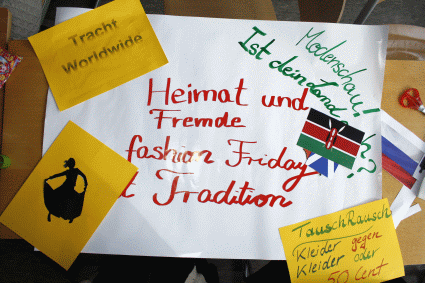 Tracht
Worldwide
Modenschau!
Ist dein Land
Heimat und
Fremde
fashion Friday
Tradition
TauschRausch
Kleider gegen
Kleider oder
50 Cent